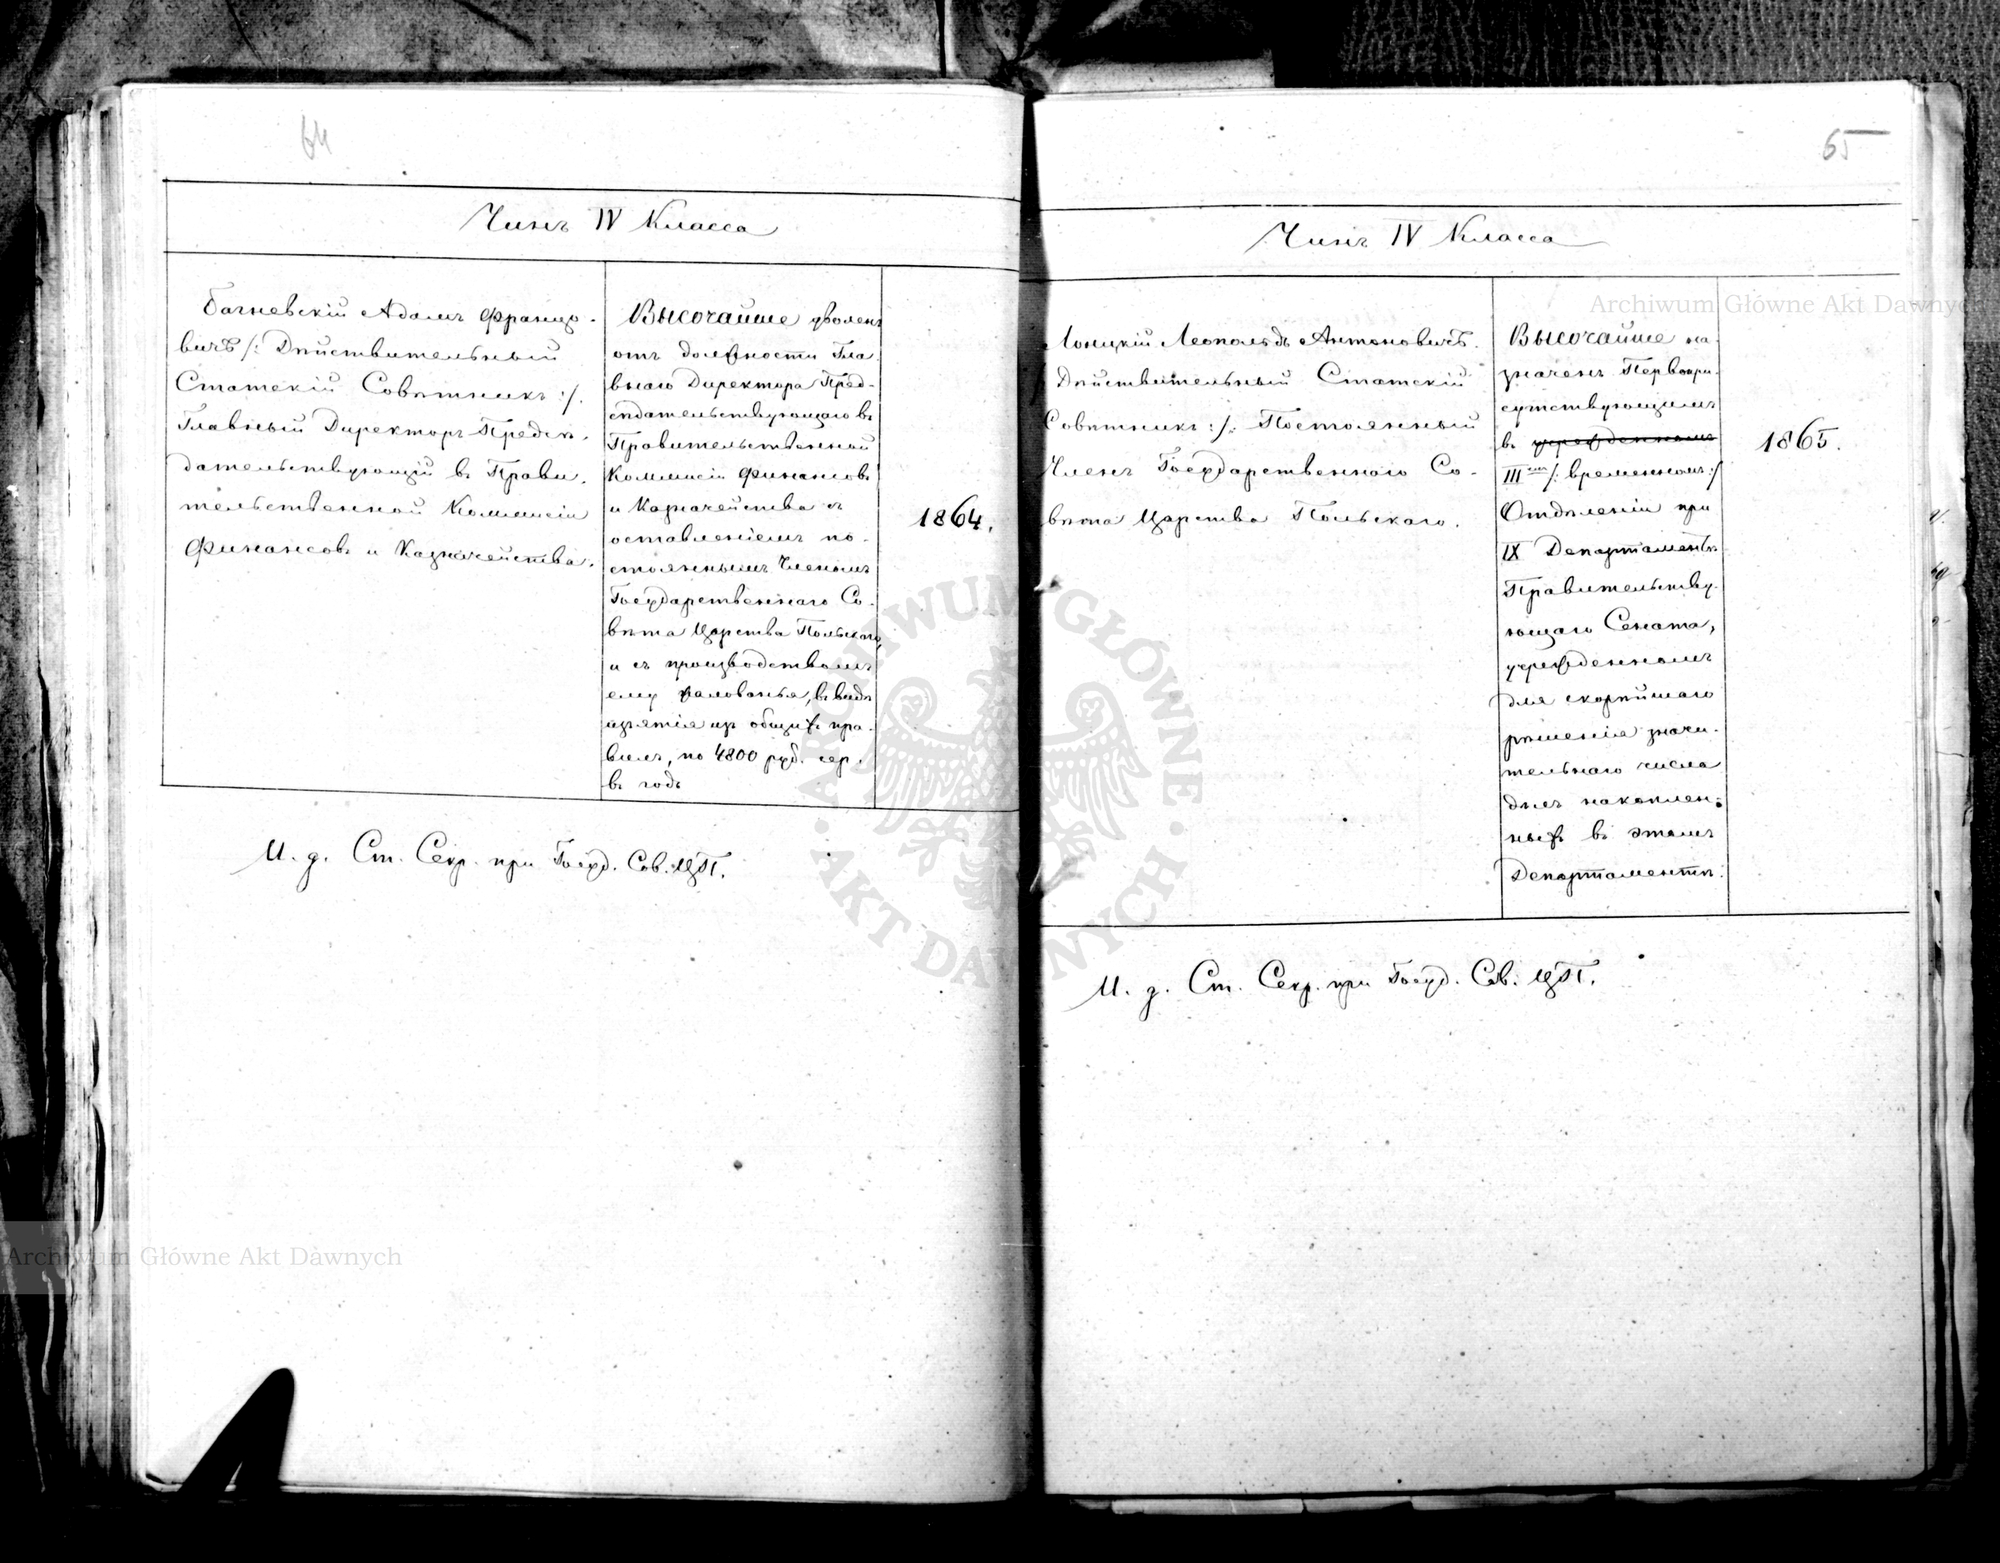 64
Чинъ IV Класса
Багневскій Адамъ Францо-
вичъ /: Дѣйствительный
Статскій Совѣтникъ :/.
Главный Директоръ Предсѣ-
дательствующій въ Прави-
тельственной Коммисіи
Финансовъ и Казначейства.
Высочайше уволенъ
отъ должности Гла
внаго Директора Пред-
сѣдательствующаго въ
Правительственной
Коммисіи Финансовъ
и Казначейства съ
оставленіемъ по-
стояннымъ Членомъ
Государственнаго Со-
вѣта Царства Польскаго,
и съ производствомъ
ему жалованья, въ видѣ
изъятія изъ общихъ пра-
вилъ, по 4800 руб. сер.
въ годъ
1864.
И. д. Ст. Секр. при Госуд. Сов. ЦП.
65
Чинъ IV Класса
Лоницкій Леопольдъ Антоновичъ.
Дѣйствительный Статскій
Совѣтникъ :/: Постоянный
Членъ Государственнаго Со-
вѣта Царства Польскаго.
Высочайше на-
значенъ Первопри-
сутствующимъ
въ учрежденномъ
III емъ /: временномъ :/
Отдѣленіи при
IX Департаментѣ
Правительству-
ющаго Сената,
учрежденномъ
для скорѣйшаго
рѣшенія значи-
тельнаго числа
дѣлъ накоплен-
ныхъ въ этомъ
Департаментѣ.
1865.
И. д. Ст. Секр. при Госуд. Сов. ЦП.
Archiwum Główne Akt Dawnych
Archiwum Główne Akt Dawnych
ARCHIWUM GŁÓWNE
AKT DAWNYCH